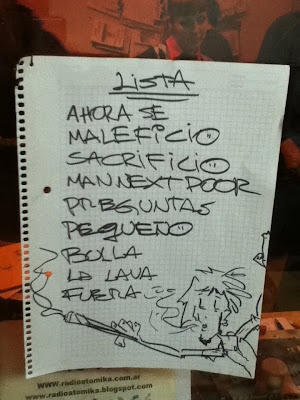 LISTA
AHORA SE
MALEFICIO
SACRIFICIO
MAN NEXT DOOR
PREGUNTAS
PEQUEÑO
BOLLA
LA LAVA
FUERA
www.radioatomika.com.ar
www.radioatomika.blogspot.com